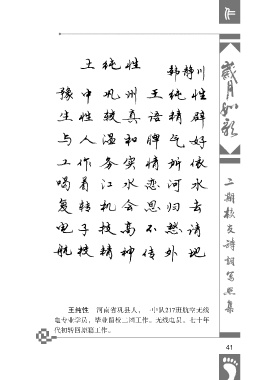 王纯性
韩静川
豫中巩洲王纯性
生性较真语精辟
与人温和脾气好
工作务实情所依
喝着江水恋河水
复转机会思归去
电子技高不然请
航校精神传外地
王纯性 河南省巩县人，一中队217班航空无线
电专业学员，毕业留校二河工作。无线电员。七十年
代初转回原籍工作。
岁月如歌
二期校友诗词写照集
41